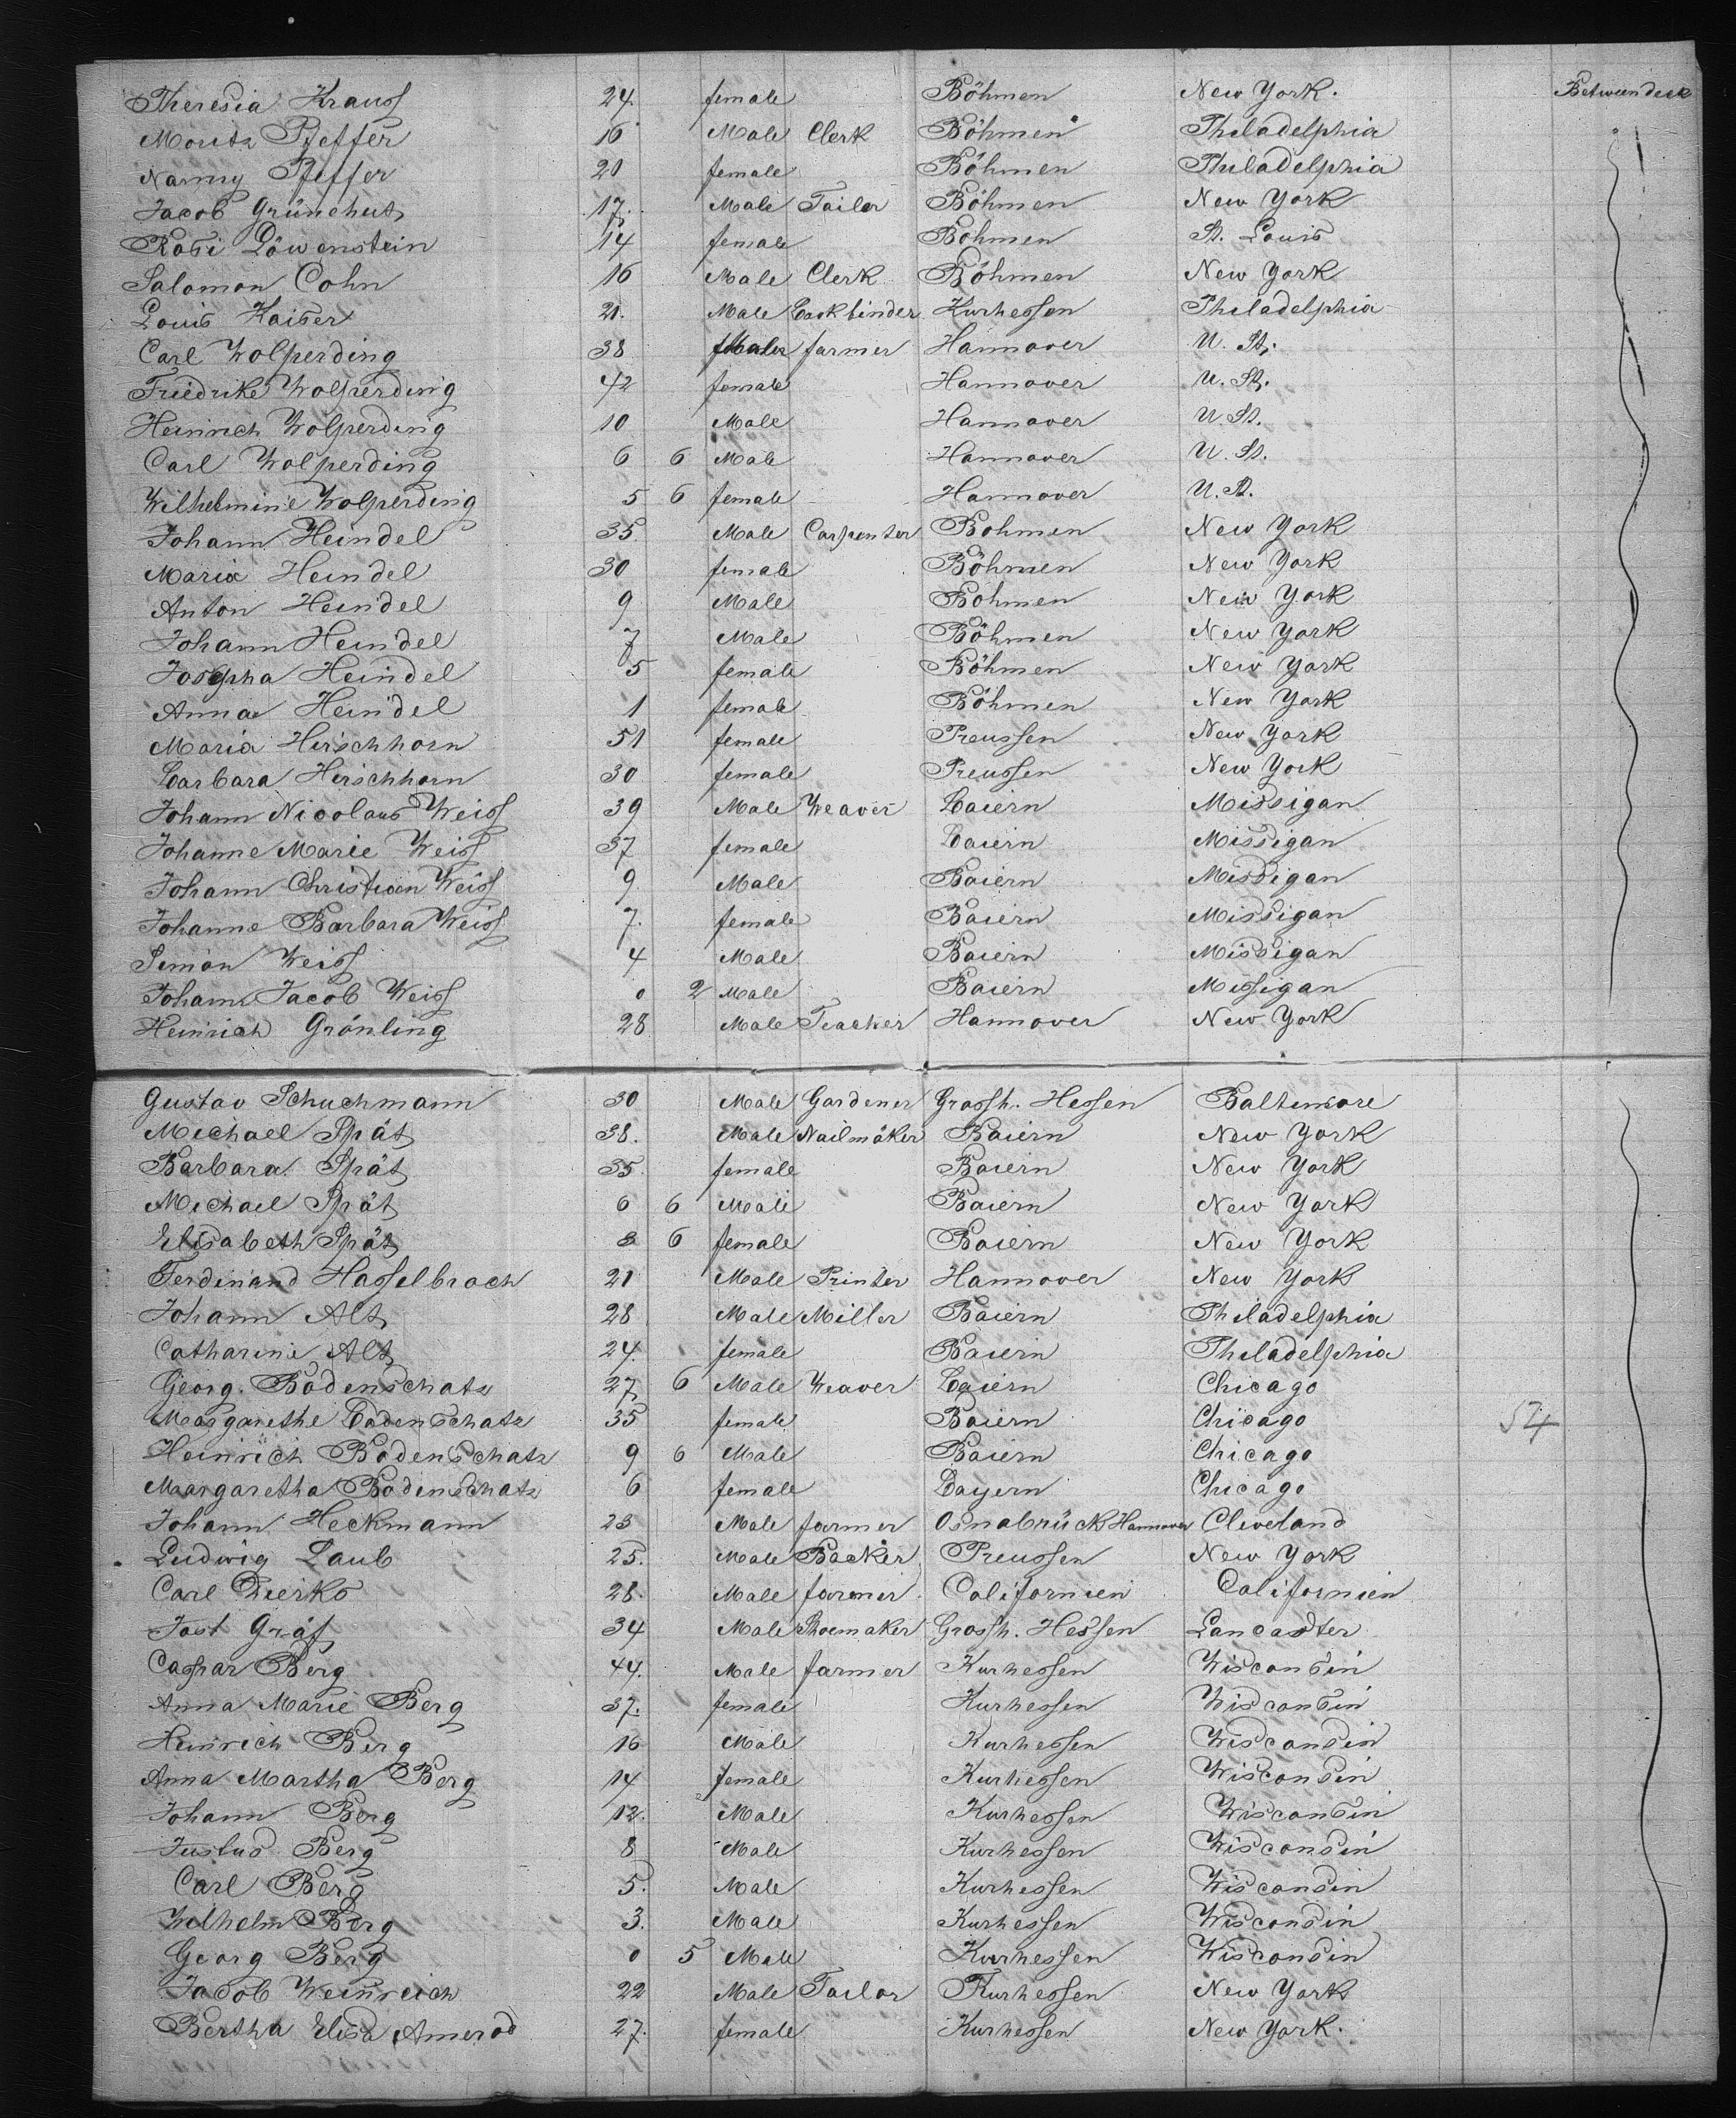 Theresia Krauß 24. female Böhmen New York. Betweendeck
Moritz Pfeffer 16 Male Clerk Böhmen Philadelphia
Nanny Pfeffer 20 female Böhmen Philadelphia
Jacob Grünehut 17. Male Tailor Böhmen New York
Rosi Löwenstein 14 female Böhmen St. Louis
Salomon Cohn 16 Male Clerk Böhmen New York
Louis Kaiser 21. Male Bookbinder Kurhessen Philadelphia
Carl Wolperding 38 Male farmer Hannover U. St.
Friedrike Wolperding 42 female Hannover U. St.
Heinrich Wolperding 10 Male Hannover U. St.
Carl Wolperding 6 6 Male Hannover U. St.
Wilhelmine Wolperding 5 6 female Hannover U. St.
Johann Heindel 35. Male Carpenter Bohmen New York
Maria Heindel 30 female Böhmen New York
Anton Heindel 9 Male Bohmen New York
Johann Heindel 7 Male Böhmen New York
Josepha Heindel 5 female Böhmen New York
Anna Heindel 1 female Böhmen New York
Maria Hirschhorn 51 female Preussen New York
Barbara Hirschhorn 30 female Preussen New York
Johann Nicolaus Weiß 39 Male Weaver Baiern Missigan
Johanne Marie Weiß 37 female Baiern Missigan
Johann Christian Weiß 9. Male Baiern Missigan
Johanne Barbara Weiß 7. female Baiern Missigan
Simon Weiß 4 Male Baiern Missigan
Johann Jacob Weiß 0 2 Male Baiern Missigan
Heinrich Grönling 28 Male Teacher Hannover New York
Gustav Schuchmann 30 Male Gardener Grossh. Hessen Baltimore
Michael Spät 38. Male Nailmäker Baiern New York
Barbara Spät 35. female Baiern New York
Michael Spät 6 6 Male Baiern New York
Elisabeth Spät 3 6 female Baiern New York
Ferdinand Hasselbrach 21 Male Printer Hannover New York
Johann Alt 28 Male Miller Baiern Philadelphia
Catharine Alt 24. female Baiern Philadelphia
Georg. Bodenschatz 27 6 Male Weaver Baiern Chicago
Margarethe Bodenschatz 35 female Baiern Chicago 54
Heinrich Bodenschatz 9 6 Male Baiern Chicago
Margaretha Bodenschatz 6 female Bayern Chicago
Johann Heckmann 23 Male farmer Osnabrück Hannover Cleveland
Ludwig Laub 25. Male Backer Preussen New York
Carl Dierko 28. Male farmer Californien Californien
Jost Gräf 34 Male Shoemaker Grossh. Hessen Lancaster
Caspar Berg 44. Male farmer Kurhessen Wisconsin
Anna Marie Berg 37. female Kurhessen Wisconsin
Heinrich Berg 16 Male Kurhessen Wisconsin
Anna Martha Berg 14 female Kurhessen Wisconsin
Johann Berg 12. Male Kurhessen Wisconsin
Justus Berg 8 Male Kurhessen Wisconsin
Carl Berg 5. Male Kurhessen Wisconsin
Wilhelm Berg 3. Male Kurhessen Wisconsin
Georg Berg 0 5 Male Kurhessen Wisconsin
Jacob Weinreich 22 Male Tailor Kurhessen New York
Bertha Elisa Amerod 27. female Kurhessen New York.